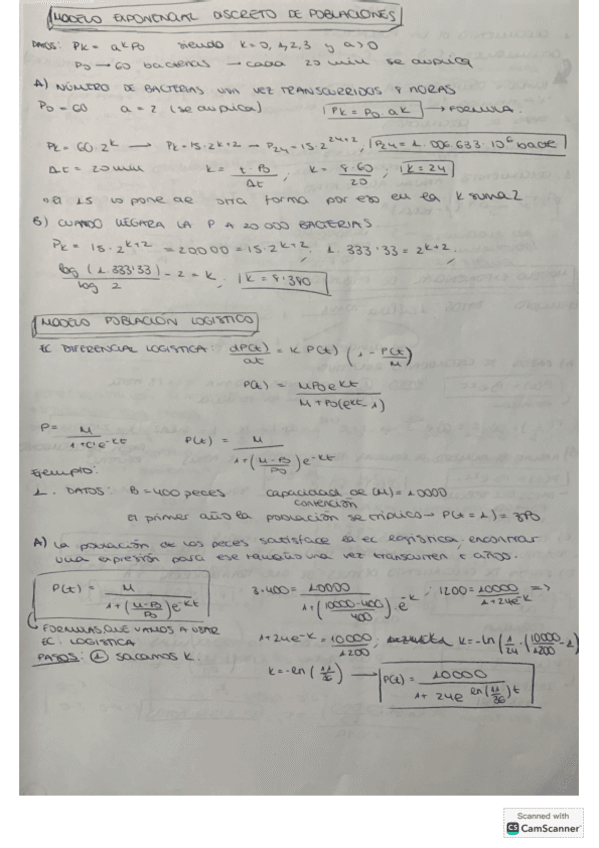 MODELO EXPONENCIAL DISCRETO DE POBLACIONES
DATOS: Pk = a^k P0 siendo k=0, 1, 2, 3 y a>0
P0 → 60 bacterias → cada 20 min se duplica
A) NÚMERO DE BACTERIAS UNA VEZ TRANSCURRIDOS 8 HORAS
P0 = 60 a = 2 (se duplica) Pk = P0 ak → FORMULA.
Pk = 60·2^k → Pk = 15·2^k+2 → P24 = 15·2^24+2, P24 = 1.006.633·10^6 bacte
Δt = 20 min k = t·P0/Δt; k = 8·60/20; k = 24
el 15 lo pone de otra forma por eso en la k suma 2
B) CUANDO LLEGARA LA P A 20000 BACTERIAS
Pk = 15·2^k+2 = 20000 = 15·2^k+2; 1.333'33 = 2^k+2;
log (1.333'33)/log 2 - 2 = k. k = 8'380
MODELO POBLACIÓN LOGISTICO
EC DIFERENCIAL LOGISTICA: dP(t)/dt = K P(t) (1 - P(t)/M)
P(t) = MP0e^kt/M+P0(e^kt-1)
P = M/1+C·e^-kt P(t) = M/1+(M-P0/P0)e^-kt
Ejemplo:
1. DATOS: P0 = 400 peces capacidad de contención (M) = 10000
el primer año la población se triplico → P(t=1) = 3P0
A) La población de los peces satisface la ec logistica, encontrar
una expresión para ese tamaño una vez transcurren t años.
P(t) = M/1+(M-P0/P0)e^kt 3·400 = 10000/1+(10000-400/400)·e^-k; 1200 = 10000/1+24e^-k =>
FORMULAS QUE VAMOS A USAR
EC. LOGISTICA 1+24e^-k = 10000/1200; k = -ln(1/24·(10000/1200 - 1)
PASOS: ① sacamos K.
k = -ln(11/36) → P(t) = 10000/1+24e^ln(11/36)t
Scanned with
CS CamScanner